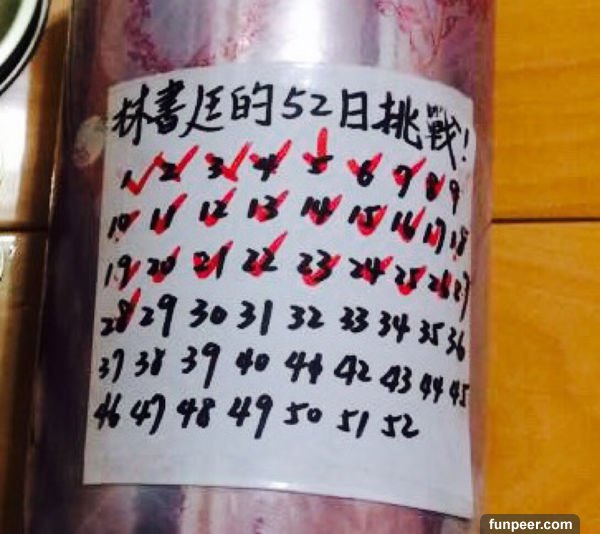 林書廷的52日挑戰!
1 2 3 4 5 6 7 8 9
10 11 12 13 14 15 16 17 18
19 20 21 22 23 24 25 26 27
28 29 30 31 32 33 34 35 36
37 38 39 40 41 42 43 44 45
46 47 48 49 50 51 52
funpeer.com